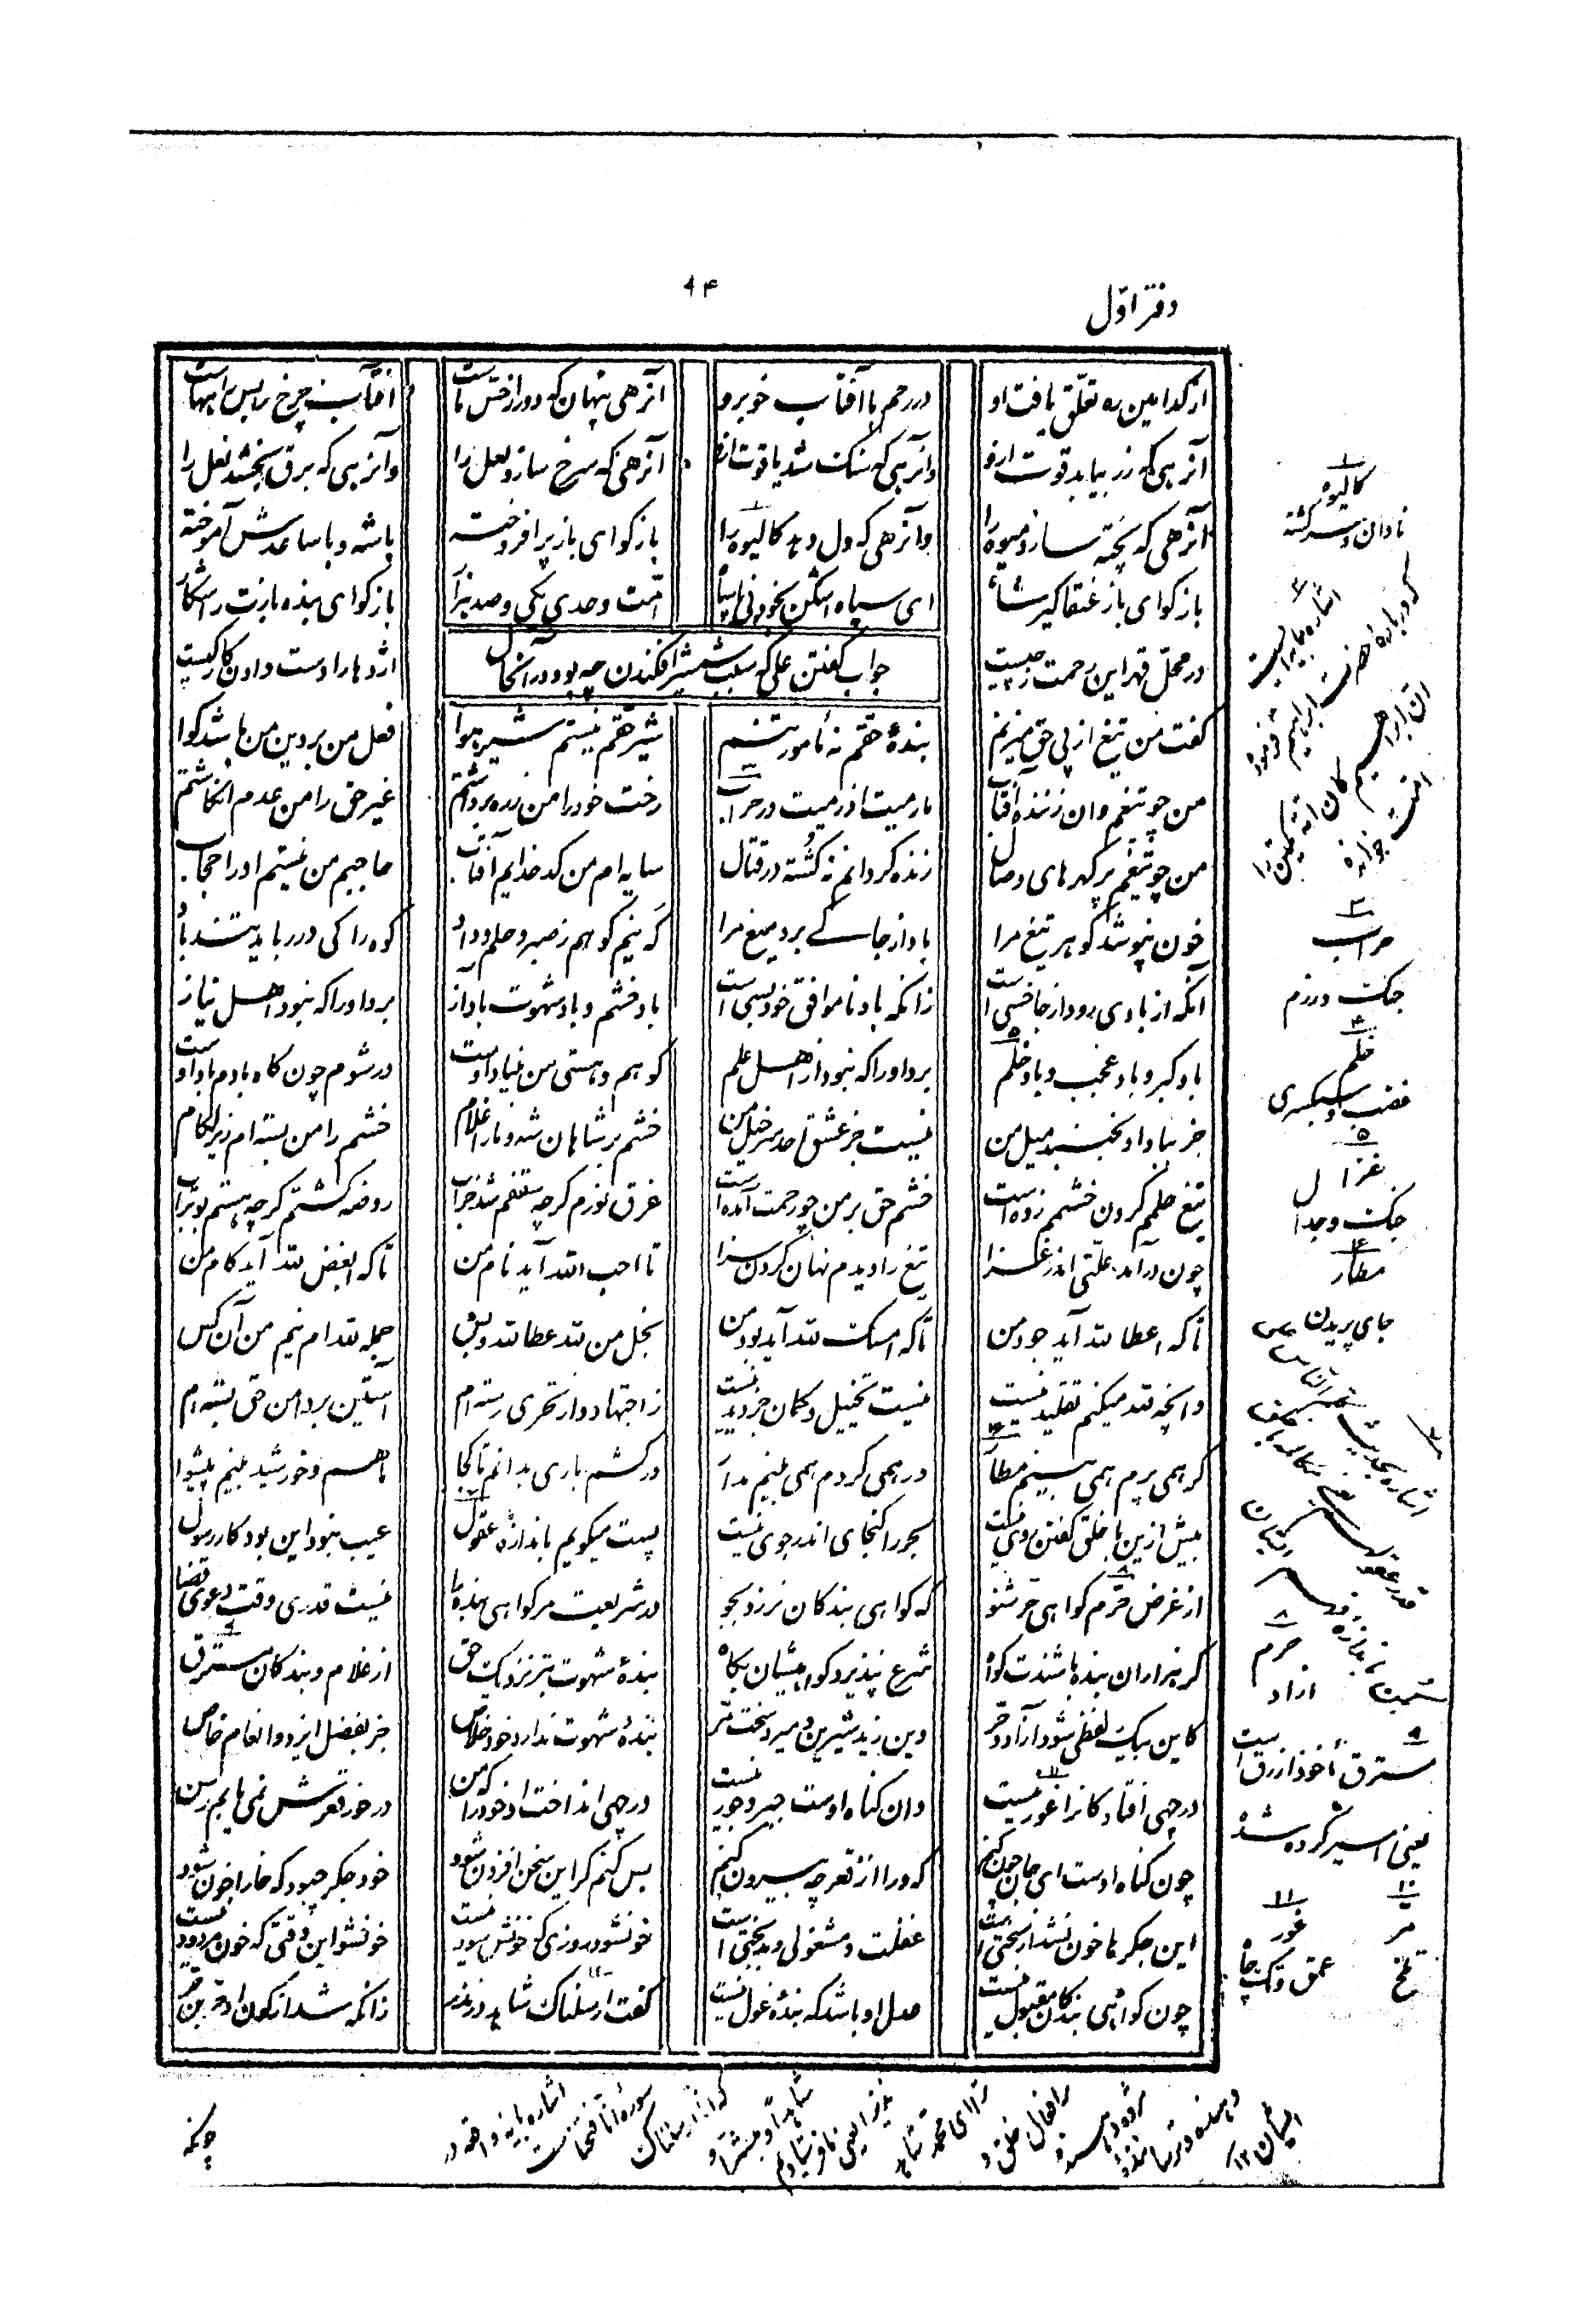 دفتر اوّل
۹۴
از کدامین ره تعلّق یافت او در رحم با آفتاب خوبرو آنرهی پنهان که دور از حسّ ماست آفتاب چرخ را بس راههاست
آنرهی که زر بیابد قوت ازو وانرهی که سنک شد یاقوت ازو آنرهی که سرخ سازد لعل را وانرهی که برق بخشد نعل را
آنرهی که پخته سازد میوه را وانرهی که دل دهد کالیوه را بازکو ای باز پر افروخته با شه و با ساعدش آموخته
بازکو ای باز عنقاکیر شاه ای سپاه اشکن بخود نی با سپاه امّت وحدی یکی و صد هزار بازکو ای بنده بازت را شکار
در محلّ قهر این رحمت ز چیست اژدها را دست دادن کار کیست
جواب کفتن علی که سبب شمشیر افکندن چه بود در آنحال
کفت من تیغ از پی حق میزنم بندهٔ حقّم نه مأمور تنم شیر حقّم نیستم شیر هوا فعل من بر دین من باشد کوا
من چو تیغم وان زننده آفتاب ما رمیت اذ رمیت در حراب رخت خود را من ز ره برداشتم غیر حق را من عدم انکاشتم
من چو تیغم پر کهرهای وصال زنده کردانم نه کشته در قتال سایه ام من کدخدایم آفتاب حاجبم من نیستم او را حجاب
خون نپوشد کوهر تیغ مرا باد از جا کی برد میغ مرا که نیم کوهم ز صبر و حلم و داد کوه را کی در رباید تند باد
آنکه از بادی رود از جا خسی است زانکه باد ناموافق خود بسی است باد خشم و باد شهوت باد آز برد او را که نبود اهل نیاز
باد کبر و باد عجب و باد خلم برد او را که نبود از اهل علم کوهم و هستی من بنیاد اوست ور شوم چون کاه بادم باد اوست
جز بباد او نجنبد میل من نیست جز عشق احد سر خیل من خشم بر شاهان شه و ما را غلام خشم را من بسته ام زیر لکام
تیغ حلمم کردن خشمم زده است خشم حق بر من چو رحمت آمده است غرق نورم کرچه سقفم شد خراب روضه کشتم کرچه هستم بوتراب
چون درآمد علّتی اندر غزا تیغ را دیدم نهان کردن سزا تا احب لله آید نام من تا که ابغض لله آید کام من
تا که اعطا لله آید جود من تا که امسک لله آید بود من بخل من لله عطا لله و بس جمله لله ام نیم من آن کس
وانچه لله میکنم تقلید نیست نیست تخییل و کمان جز دید نیست ز اجتهاد و از تحری رسته ام آستین بر دامن حق بسته ام
کر همی پرم همی بینم مطار ور همی کردم همی بینم مدار ور کشم باری بدانم تا کجا ماهم و خورشید بینم پیشوا
بیش ازین با خلق کفتن روی نیست بحر را کنجای اندر جوی نیست پست میکویم باندازهٔ عقول عیب نبود این بود کار رسول
از غرض حرّم کواهی حر شنو که کواهی بندکان نرزد بجو در شریعت مر کواهی بنده را نیست قدری وقت دعوی قضا
کر هزاران بنده باشندت کواه شرع نپذیرد کواهیشان بکاه بندهٔ شهوت بتر نزدیک حق از غلام و بندکان مسترق
کاین بیک لفظی شود آزاد و حر وین زید شیرین و میرد سخت مر بندهٔ شهوت ندارد خود خلاص جز بفضل ایزد و انعام خاص
در چهی افتاد کانرا غور نیست وان کناه اوست جبر و جور نیست در چهی انداخت او خود را که من در خور قعرش نمی یابم رسن
چون کناه اوست ای جان چون کنم که ورا از قعر چه بیرون کنم بس کنم کر این سخن افزون شود خود جکر چبود که خارا خون شود
این جکرها خون نشد از سختی است غفلت و مشغولی و بدبختی است خون شود روزی که خونش سود نیست خون شو این وقتی که خون مردود نیست
چون کواهی بندکان مقبول نیست عدل او باشد که بندهٔ غول نیست کفت ارسلناک شاهد در نذر زانکه شد از کون او حر بن حر
۱
کالیوه
نادان و سرکشته
۲
اشاره بآیه ایست
که درباره حضرت ابراهیم فرمود
ان ابراهیم کان امة
۳
حراب
جنک و رزم
۴
خلم
غضب و سبکسری
۵
غزا
جنک و جدال
۶
مطار
جای پریدن
اشاره بحدیث
۸
حرم
ازاد
۹
مسترق مأخوذ از رق است
یعنی اسیر کرده شده
۱۰
مر
تلخ
۱۱
غور
عمق و تک چاه
۱۲
اشاره بآیه واقعه در
سورهٔ انا فتحنا است
که انا ارسلناک
شاهداً و مبشراً و
نذیراً یعنی ما فرستادیم
ترا ای محمد شاهد
چونکه